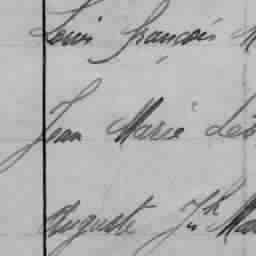 Louis François M
Jean Marie Léo
Auguste Jh Mar